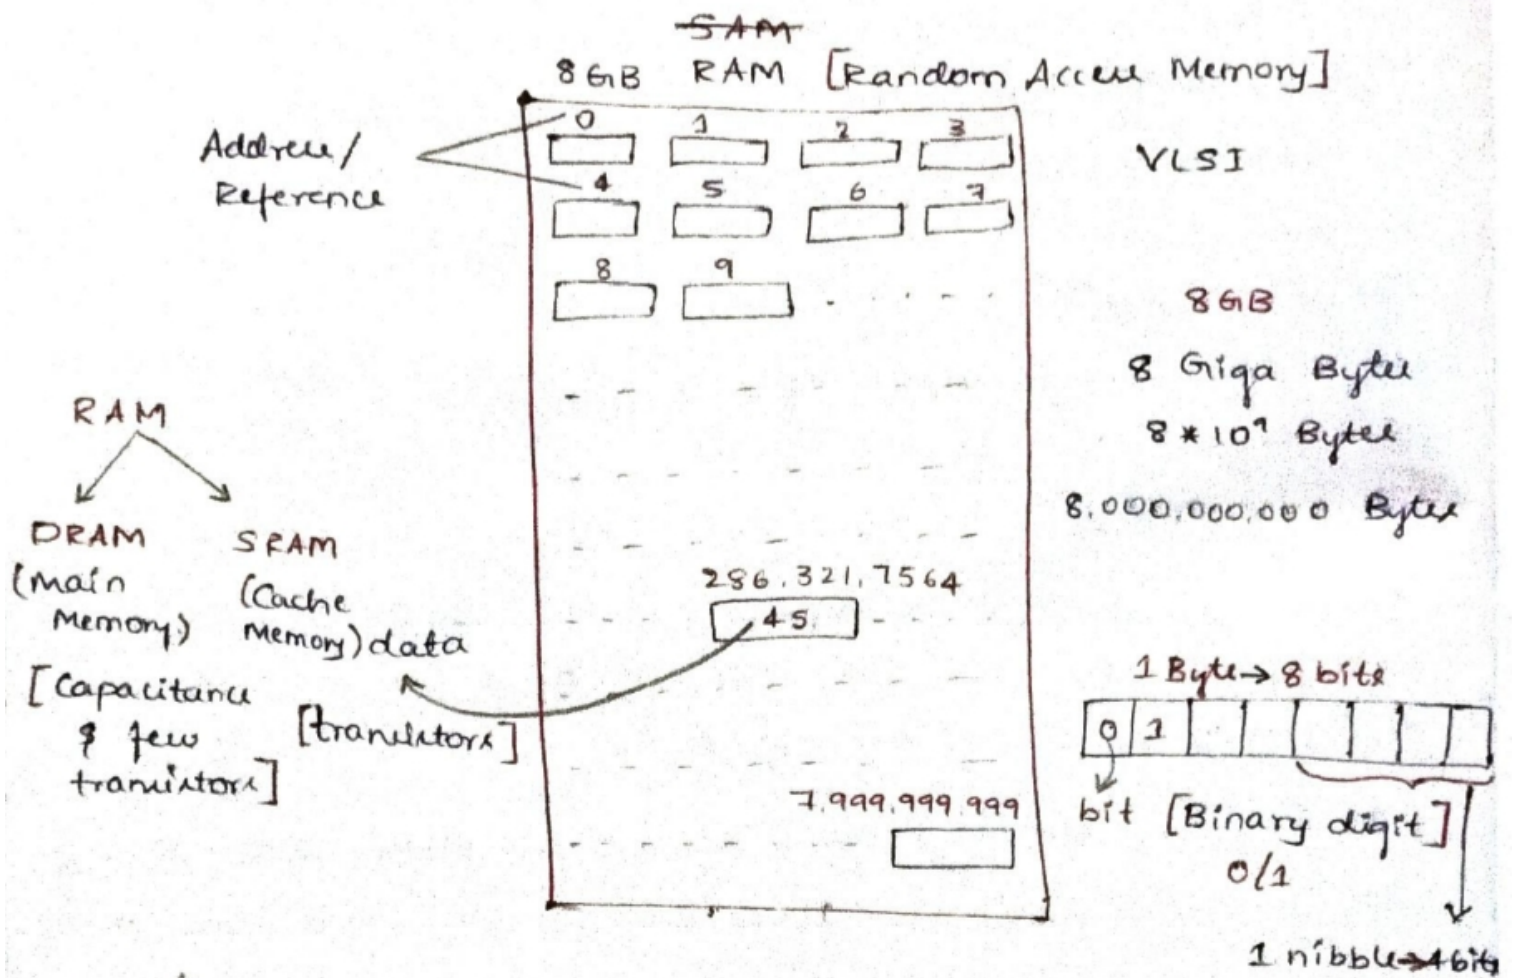 SAM
8GB RAM [Random Access Memory]
Address/
Reference
0 1 2 3
4 5 6 7
8 9
VLSI
8GB
8 Giga Bytes
8 * 10⁹ Bytes
8,000,000,000 Bytes
RAM
DRAM SRAM
(Main
Memory)
(Cache
Memory) data
[Capacitance
& few
transistors]
[transistors]
286,321,7564
45
7,999,999,999
1 Byte → 8 bits
0 1
bit [Binary digit]
0/1
1 nibble → 4 bits